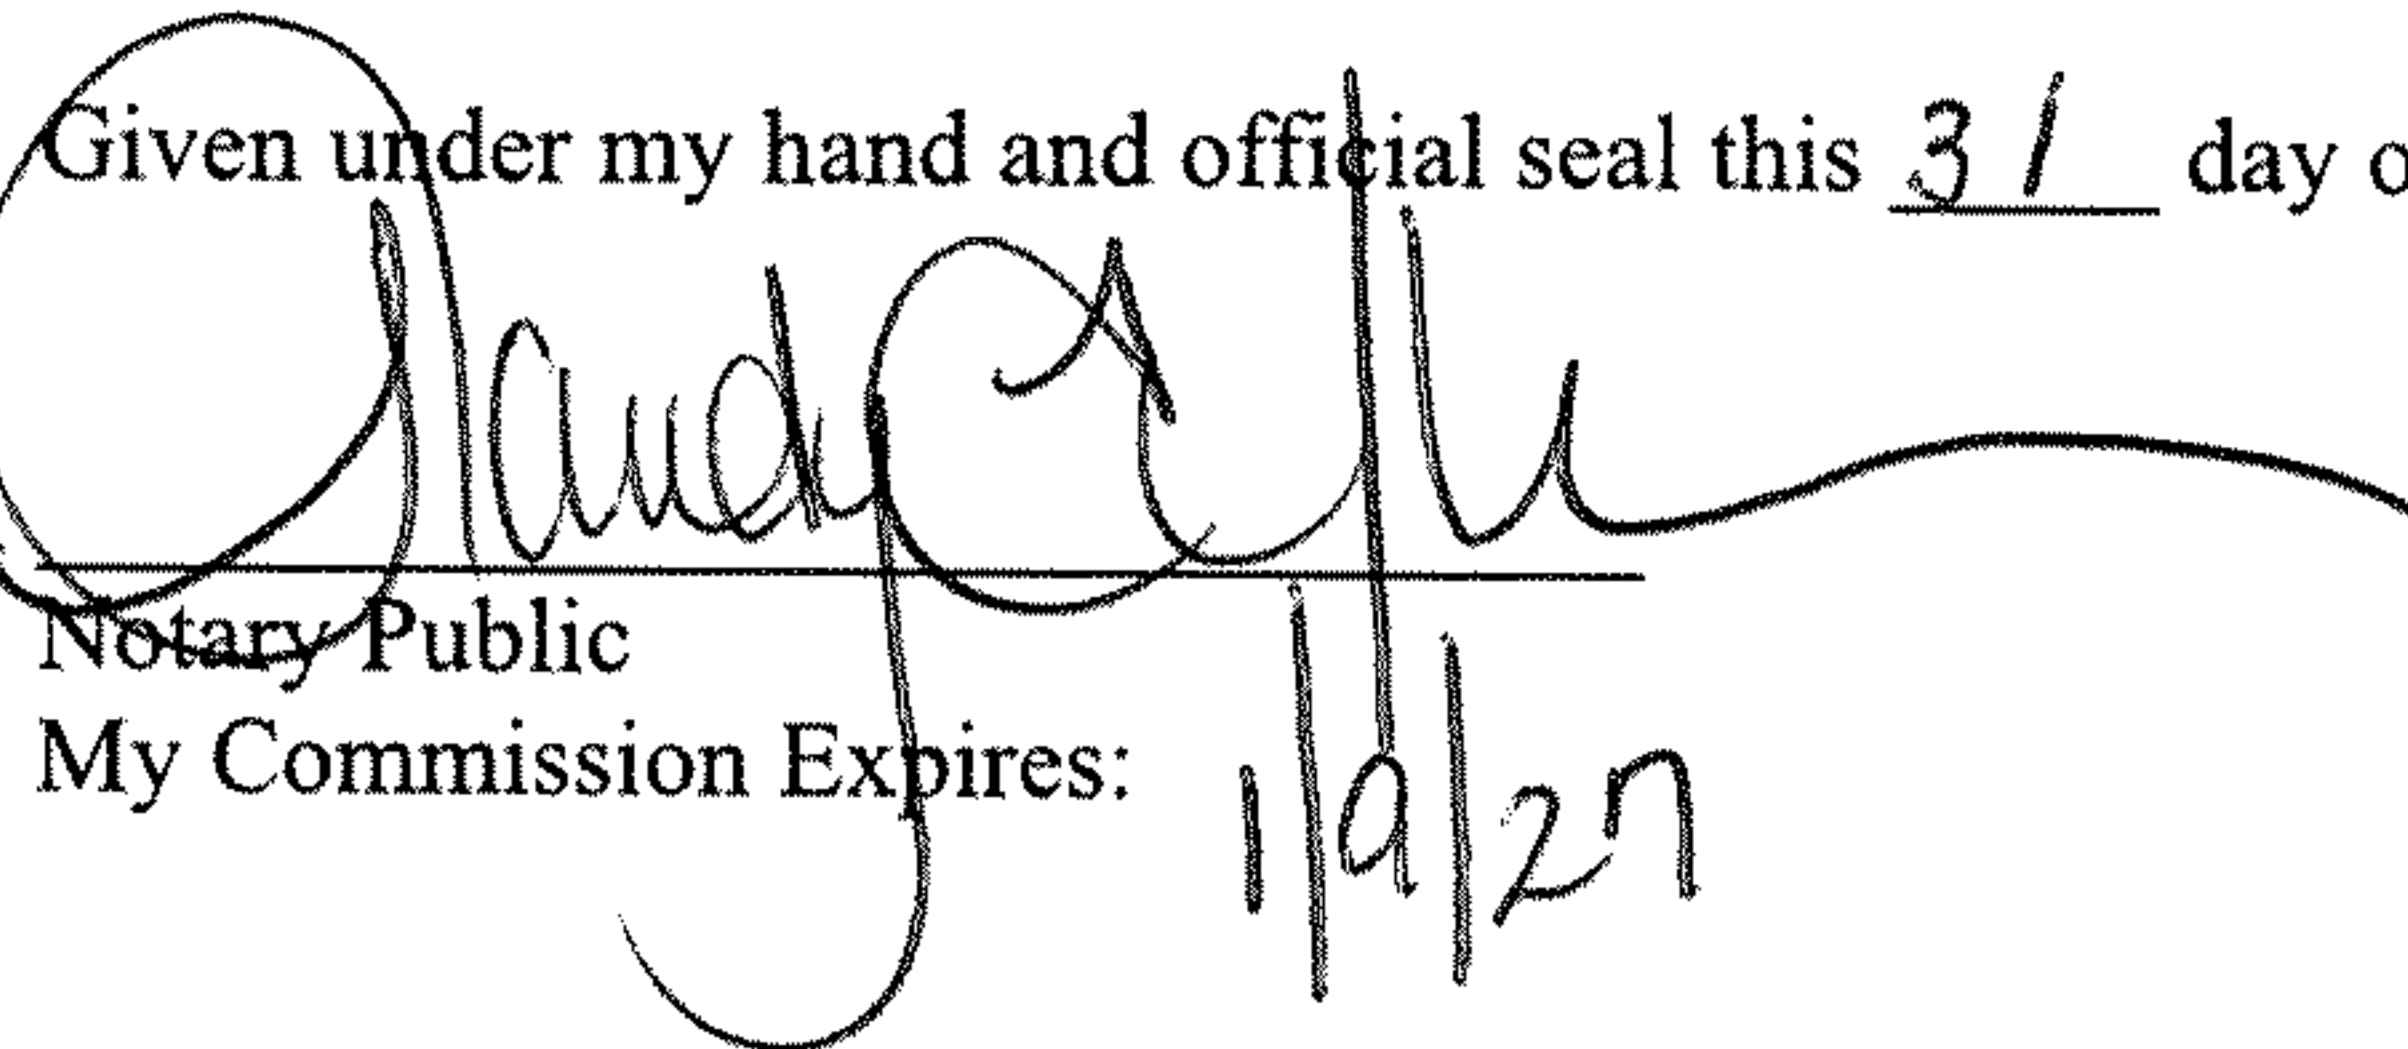 Given under my hand and official seal this 31 day o
Notary Public
My Commission Expires: 1/9/27